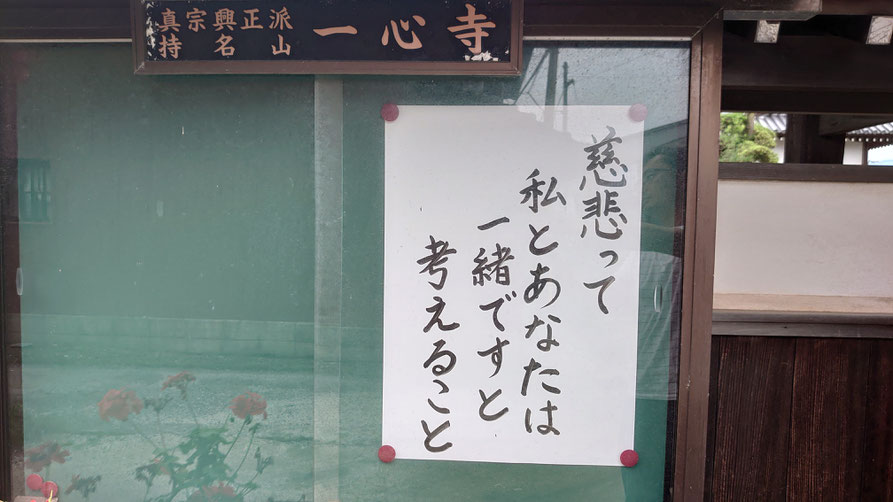 真宗興正派
持名山
一心寺
慈悲って
私とあなたは
一緒ですと
考えること